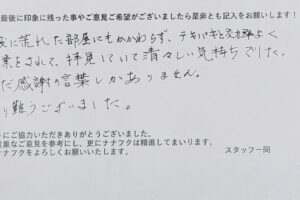 最後に印象に残った事やご意見ご希望がございましたら是非とも記入をお願いします！
に荒れた部屋にもかかわらず、テキパキと効率よく
業をされて、拝見していて清々しい気持ちでした。
だ感謝の言葉しかありません。
り難うございました。
トにご協力いただきありがとうございました。
重なご意見を参考にし、更にナナフクは精進してまいります。
ナナフクをよろしくお願いいたします。
スタッフ一同